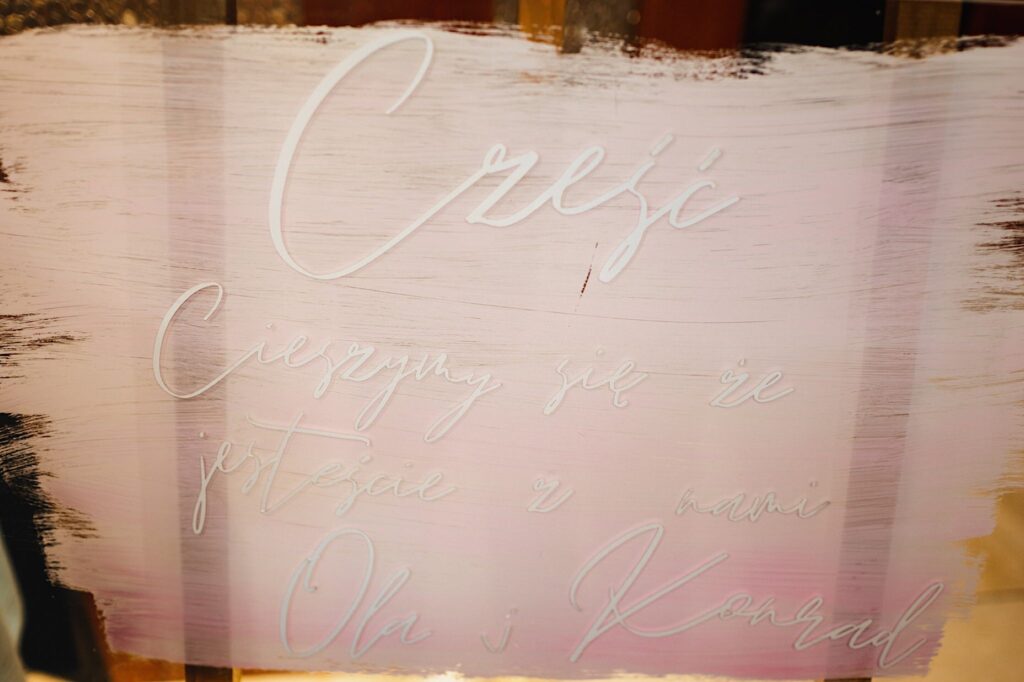 Cześć
Cieszymy się że
jesteście z nami
Ola i Konrad